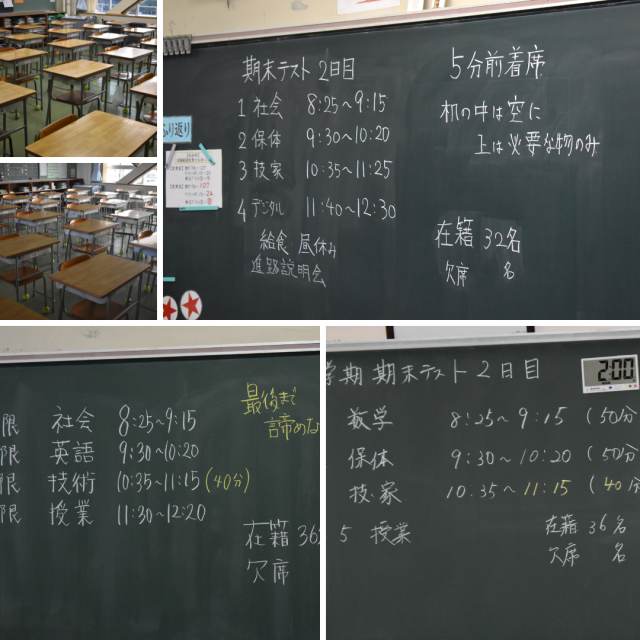 期末テスト 2日目
1 社会 8:25~9:15
2 保体 9:30~10:20
3 技家 10:35~11:25
4 デジタル 11:40~12:30
給食 昼休み
進路説明会
5分前着席
机の中は空に
上は必要な物のみ
在籍 32名
欠席 名
ふり返り
限 社会 8:25~9:15
限 英語 9:30~10:20
限 技術 10:35~11:15 (40分)
限 授業 11:30~12:20
最後まで
諦めな
在籍 36
欠席
学期 期末テスト 2日目
2:00
数学 8:25~9:15 (50分
保体 9:30~10:20 (50分
技家 10:35~11:15 (40分
5 授業
在籍 36名
欠席 名